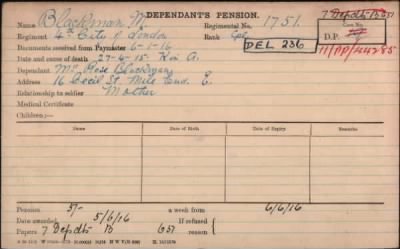 DEPENDANT'S PENSION.
Name Blackman W. Regimental No. 1751.
Regiment 4th City of London Rank Cpl
DEL 236
7 Depdts B 651
Case No.
D.P.
11/DP/44285
Documents received from Paymaster 6-1-16
Date and cause of death 27-4-15 - K in A.
Dependant Mrs Rose Blackman
Address 16 Cecil St. Mile End. E.
Relationship to soldier Mother
Medical Certificate
Children:—
Name Date of Birth Date of Expiry
Pension 5/- a week from 6/6/16
Date awarded 5/6/16 If refused
Papers 7 Depdts B 651 reason